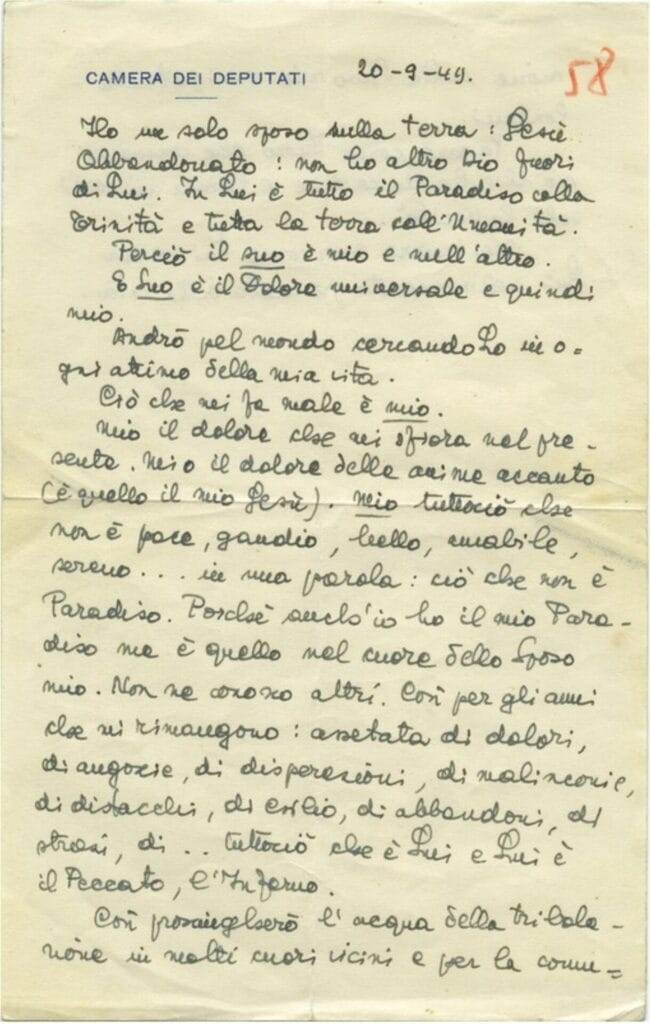 CAMERA DEI DEPUTATI
20-9-49.
58
Ho un solo sposo sulla terra: Gesù
Abbandonato: non ho altro Dio fuori
di Lui. In Lui è tutto il Paradiso colla
Trinità e tutta la terra coll'Umanità.
Perciò il suo è mio e null'altro.
E Suo è il Dolore universale e quindi
mio.
Andrò pel mondo cercandoLo in o=
gni attimo della mia vita.
Ciò che mi fa male è mio.
Mio il dolore che mi sfiora nel pre-
sente. Mio il dolore delle anime accanto
(è quello il mio Gesù). Mio tuttociò che
non è pace, gaudio, bello, amabile,
sereno... in una parola: ciò che non è
Paradiso. Poiché anch'io ho il mio Para-
diso ma è quello nel cuore dello Sposo
mio. Non ne conosco altri. Così per gli anni
che mi rimangono: assetata di dolori,
di angoscie, di disperazioni, di malinconie,
di distacchi, di esilio, di abbandoni, di
strazi, di .. tuttociò che è Lui e Lui è
il Peccato, l'Inferno.
Così prosciugherò l'acqua della tribola-
zione in molti cuori vicini e per la comu=